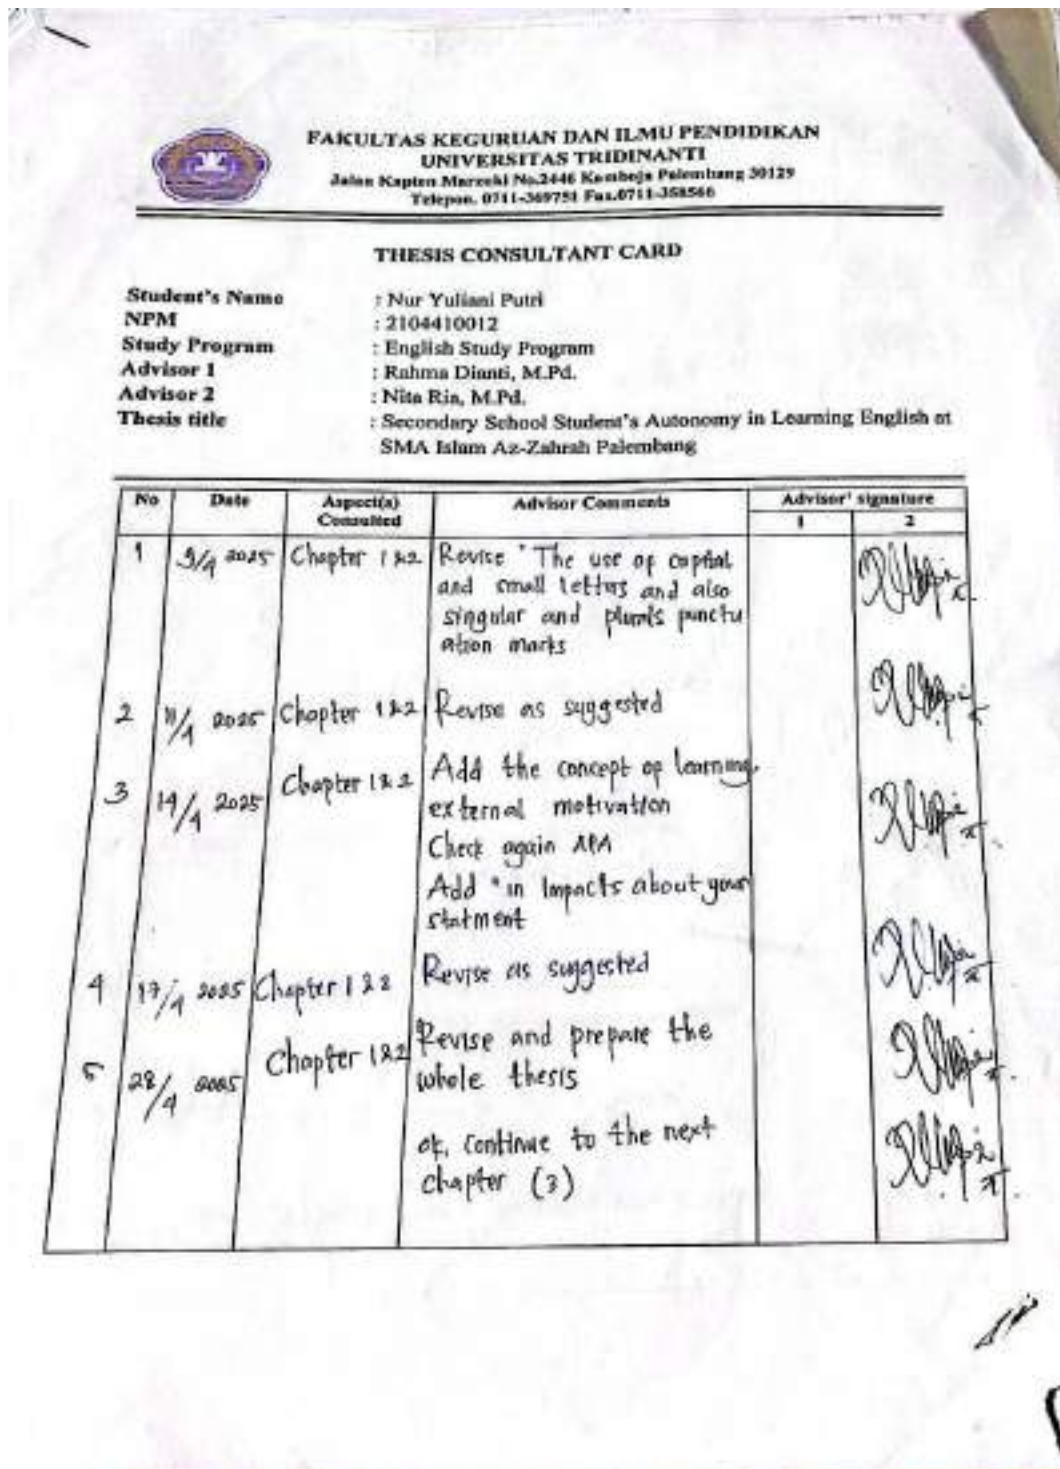 FAKULTAS KEGURUAN DAN ILMU PENDIDIKAN
UNIVERSITAS TRIDINANTI
Jalan Kapten Marzuki No.2446 Kamboja Palembang 30129
Telepon. 0711-369751 Fax.0711-358566
THESIS CONSULTANT CARD
Student's Name : Nur Yuliani Putri
NPM : 2104410012
Study Program : English Study Program
Advisor 1 : Rahma Dianti, M.Pd.
Advisor 2 : Nita Ria, M.Pd.
Thesis title : Secondary School Student's Autonomy in Learning English at
SMA Islam Az-Zahrah Palembang
No Date Aspect(s) Consulted Advisor Comments Advisor' signature
1 2
1 9/4 2025 Chapter 1 & 2 Revise " The use of capital
and small letters and also
singular and plurals punctu
ation marks
2 11/4 2025 Chapter 1 & 2 Revise as suggested
3 14/4 2025 Chapter 1 & 2 Add the concept of learning,
external motivation
Check again APA
Add " in Impacts about your
statment
4 17/4 2025 Chapter 1 & 2 Revise as suggested
5 28/4 2025 Chapter 1 & 2 Revise and prepare the
whole thesis
ok, continue to the next
chapter (3)